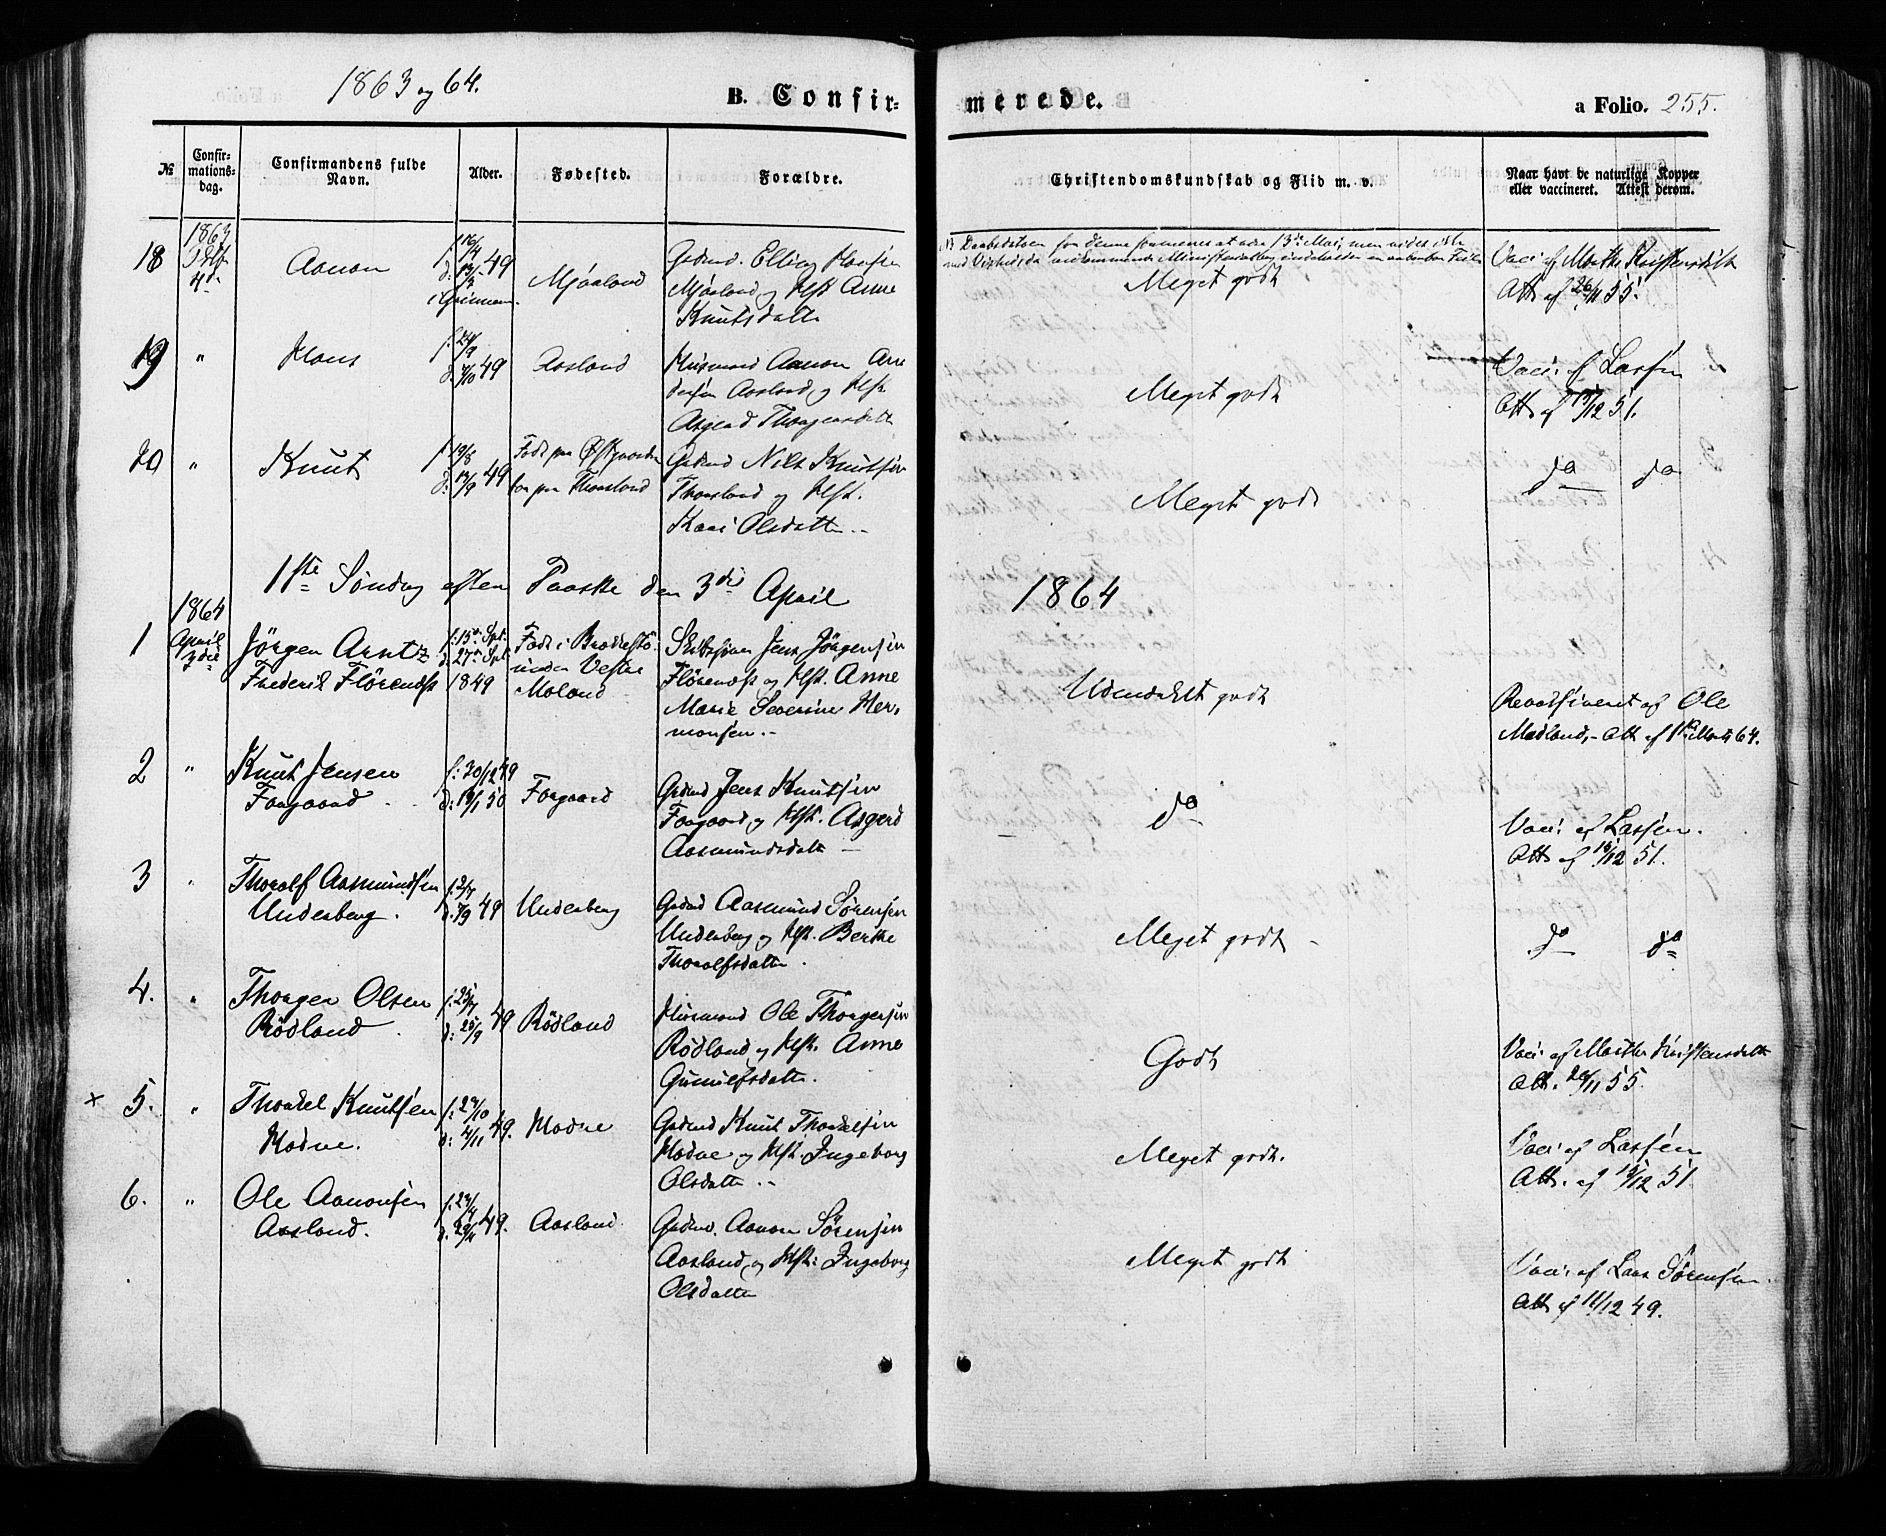 1863 og 64.
B. Confir-
merede.
a Folio. 255.
№
Confir-
mations-
dag.
Confirmandens fulde
Navn.
Alder.
Fødested.
Forældre.
Christendomskundskab og Flid m. v.
Naar havt de naturlige Kopper
eller vaccineret. Attest derom.
1863
18
4de
Aanon
49
Mjøaland
Grdmd. Elling Hansen
Mjøaland og Hst. Anne
Knutsdatter
Meget godt
Vacc. af Marthe Kristensdtr
Att. af 26/11 55.
19
"
Hans
f. 24/9
d. 7/10 49
Aasland
Husmand Aanon An-
dersen Aasland og Hst.
Asgerd Thorgersdatter
Meget godt
Vacc. af Lassen
Att. af 17/12 51.
20
"
Knut
f. 19/8
d. 17/9 49
Grdmd Nils Knutsen
Thorsland og Hst.
Kari Olsdatter.-
Meget godt
do do
1ste Søndag efter Paaske den 3die April 1864
1864
1
April
3die
Jörgen Arntz
Frederik Flörenæss
f: 15de Spt.
d: 27de Spt.
1849
Født i
under Vestre
Moland
Jens Jörgensen
Flörenæss og Hst. Anne
Marie Severine Her-
mansen.-
Udmærket godt
Revaccineret af Ole
Modland,- Att. af 1ste Marts 64.
2
"
Knut Jensen
Torgaard
f: 30/12 49
d: 19/1 50
Torgaard
Grdmd Jens Knutsen
Torgaard og Hst. Asgerd
Aasmundsdatter
do
Vacc. af Lassen.
Att. af 18/12 51.
3
"
Thorolf Aasmundsen
Underberg.
f: 2/7
d: 7/9 49
Underberg
Grdmd Aasmund Sörensen
Underberg og Hst. Berthe
Thorolfsdatter.
Meget godt
do do
4.
"
Thorger Olsen
Rödland
f: 25/7
d: 25/9 49
Rödland
Husmand Ole Thorgersen
Rödland og Hst. Anne
Gunulfsdatter.
Godt
Vacc. af Marthe Kristensdatter
Att. 26/11 55.
x 5.
"
Thorkel Knutsen
Hodne.
f: 23/10
d: 4/11 49.
Hodne
Grdmd Knut Thorkelsen
Hodne og Hst. Ingeborg
Olsdatter.-
Meget godt.
Vacc. af Lassen
Att. af 18/12 51
6.
"
Ole Aanonsen
Aasland.
f: 23/4
d: 29/4 49.
Aasland.
Grdmd. Aanon Sörensen
Aasland og Hst: Ingeborg
Olsdatter
Meget godt
Vacc. af Lars Sörensen.
Att. af 11/12 49.